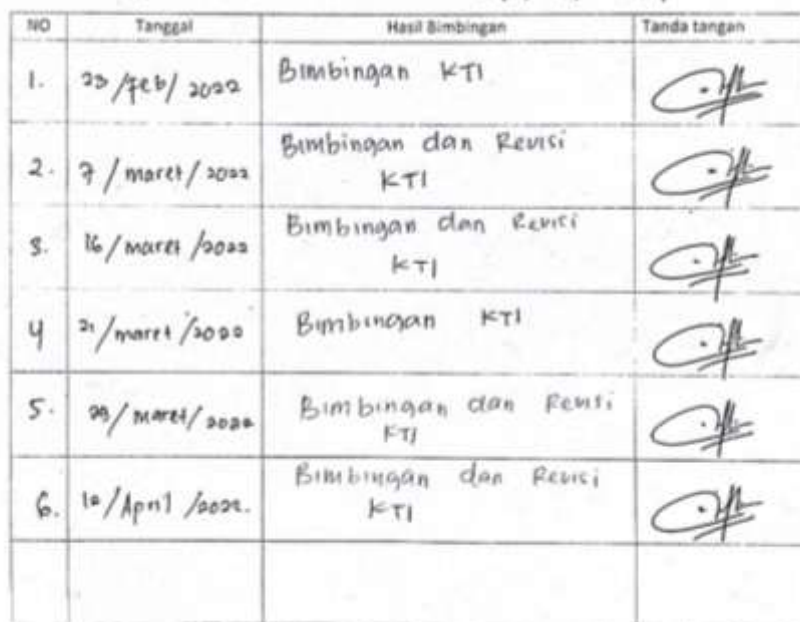 NO Tanggal Hasil Bimbingan Tanda tangan
1. 23/Feb/2022 Bimbingan KTI
2. 7/maret/2022 Bimbingan dan Revisi
KTI
3. 16/maret/2022 Bimbingan dan Revisi
KTI
4 21/maret/2022 Bimbingan KTI
5. 29/maret/2022 Bimbingan dan Revisi
KTI
6. /April/2022. Bimbingan dan Revisi
KTI